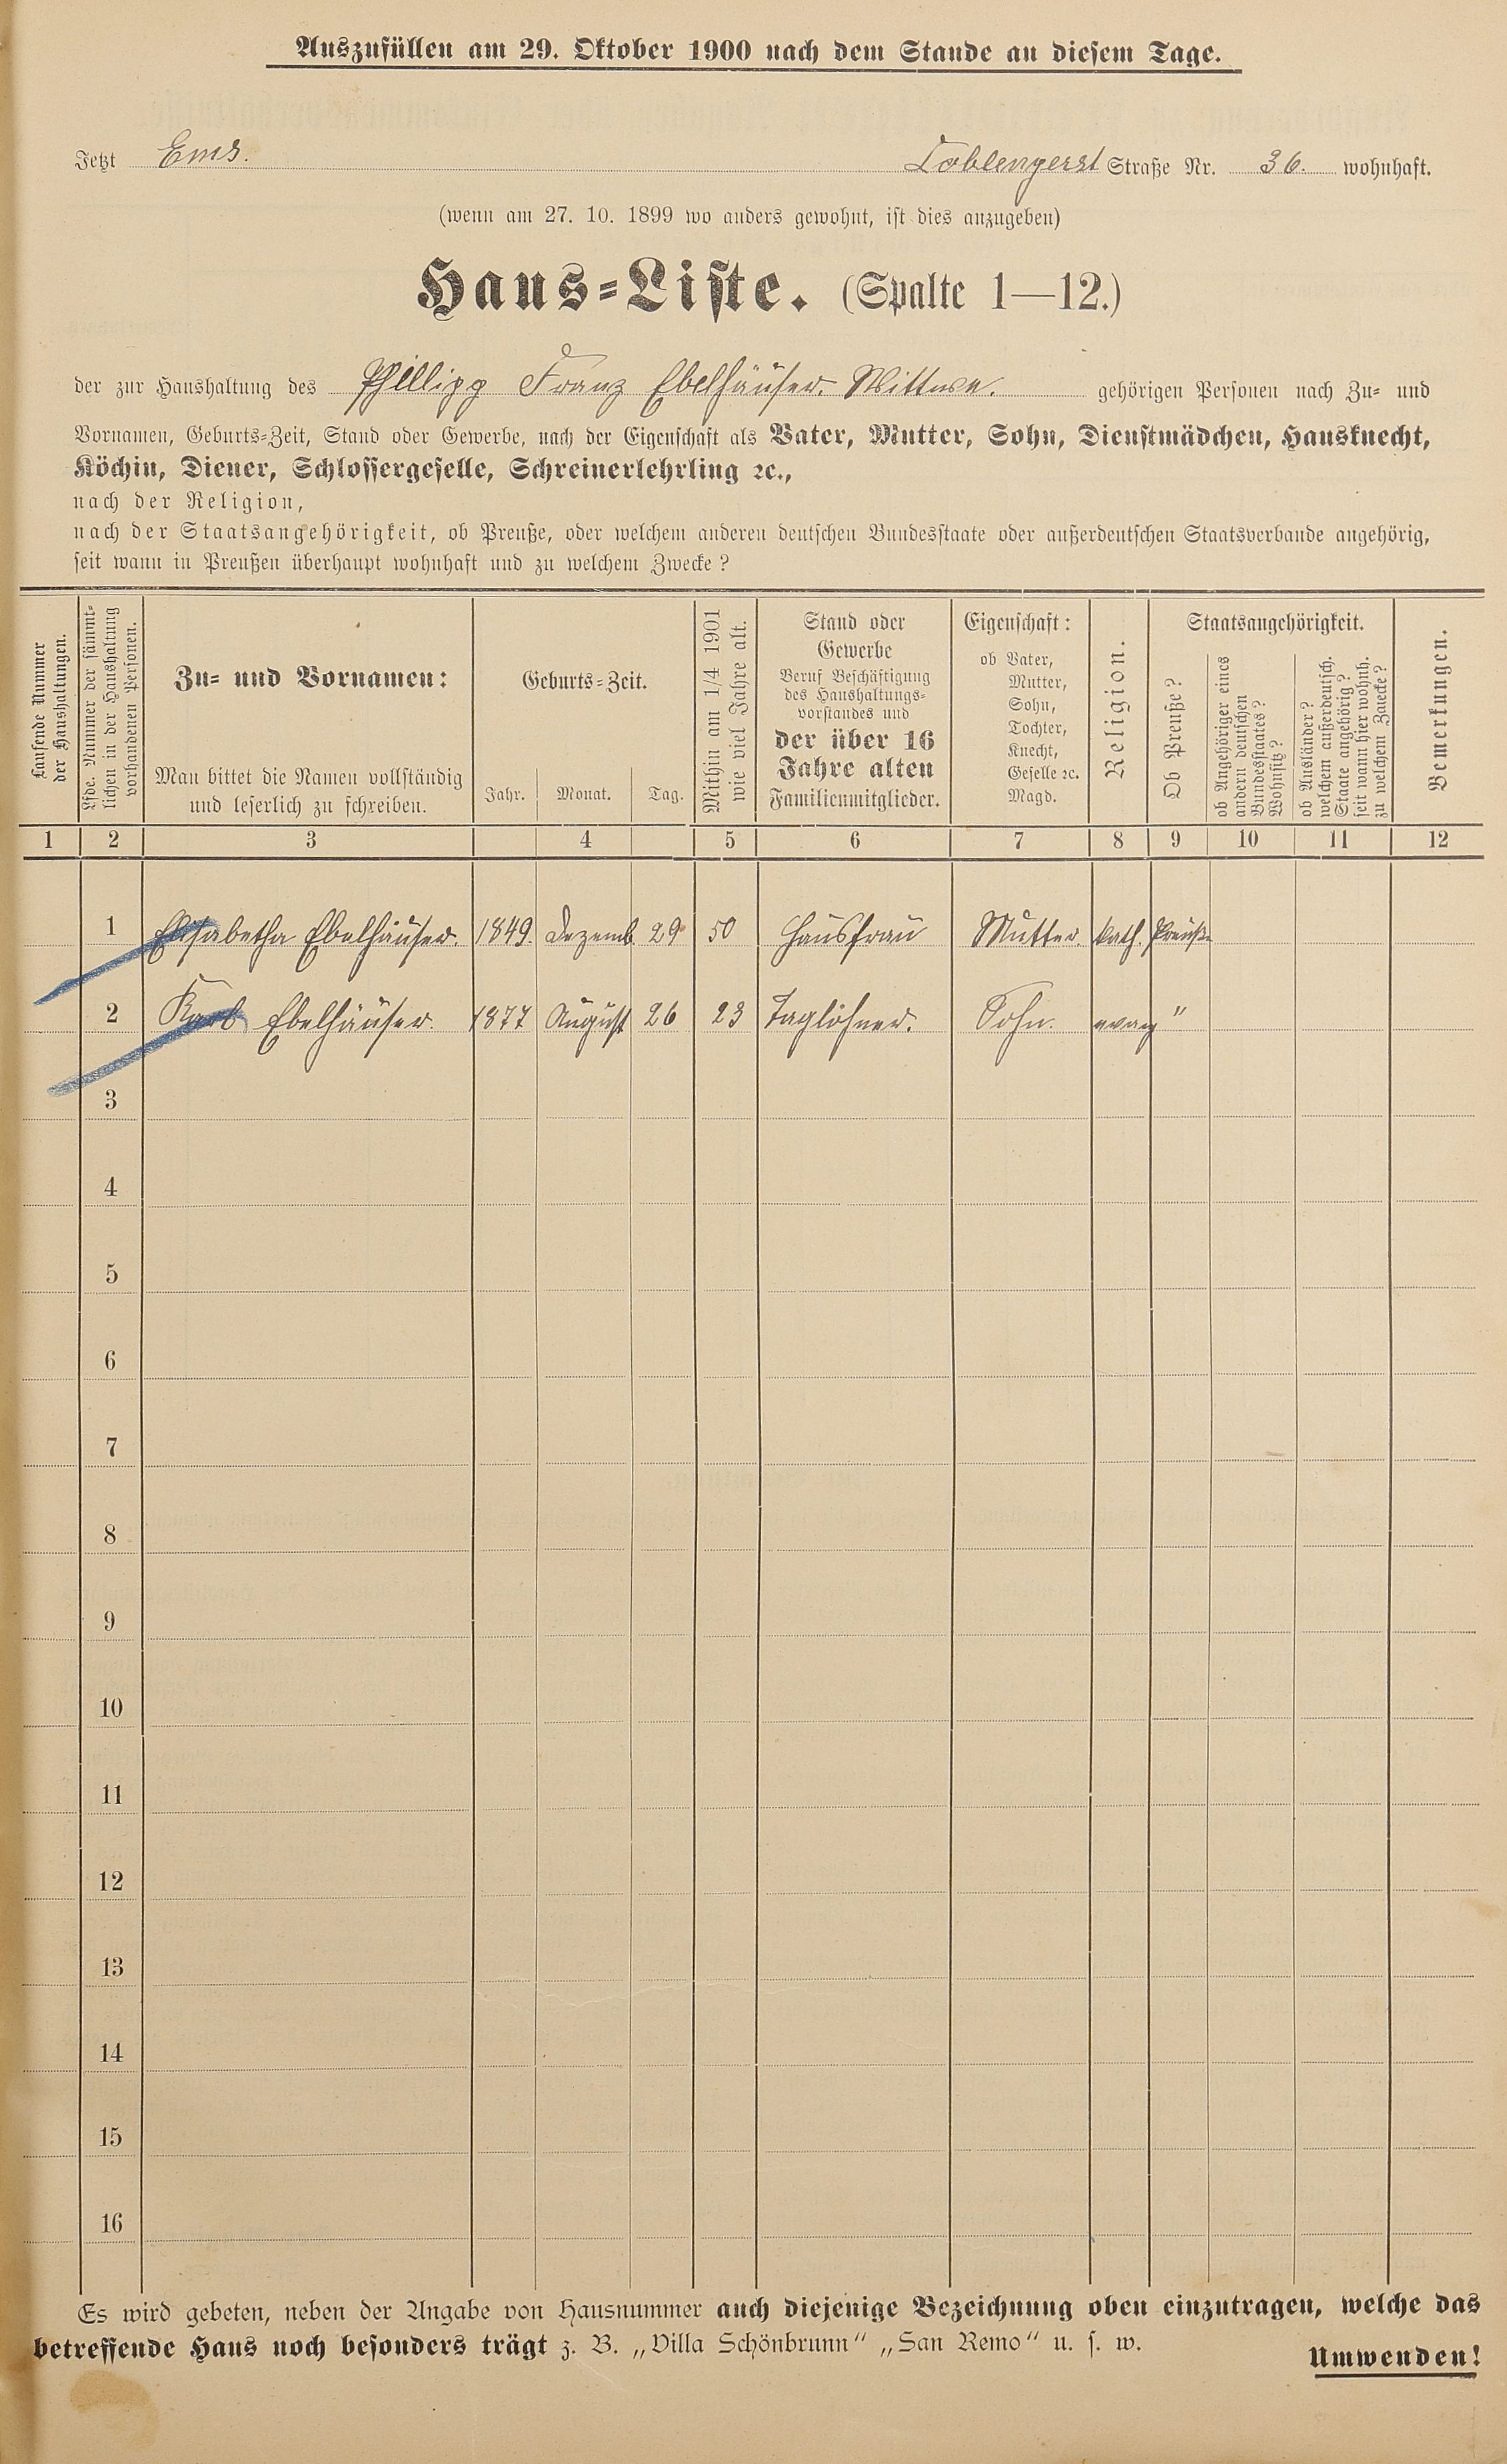 Auszufüllen am 29. Oktober 1900 nach dem Stande an diesem Tage.
Jetzt Ems. Coblenzerst Straße Nr. 36. wohnhaft.
(wenn am 27. 10. 1899 wo anders gewohnt, ist dies anzugeben)
Haus-Liste. (Spalte 1—12.)
der zur Haushaltung des Phillipp Franz Ebelhäuser. Wittwe. gehörigen Personen nach Zu- und
Vornamen, Geburts-Zeit, Stand oder Gewerbe, nach der Eigenschaft als Vater, Mutter, Sohn, Dienstmädchen, Hausknecht,
Köchin, Diener, Schlossergeselle, Schreinerlehrling ꝛc.,
nach der Religion,
nach der Staatsangehörigkeit, ob Preuße, oder welchem anderen deutschen Bundesstaate oder außerdeutschen Staatsverbande angehörig,
seit wann in Preußen überhaupt wohnhaft und zu welchem Zwecke?
Laufende Nummer
der Haushaltungen.
Lfde. Nummer der sämmt-
lichen in der Haushaltung
vorhandenen Personen.
Zu- und Vornamen:
Man bittet die Namen vollständig
und leserlich zu schreiben.
Geburts-Zeit.
Jahr. Monat. Tag.
Mithin am 1/4 1901
wie viel Jahre alt.
Stand oder
Gewerbe
Beruf Beschäftigung
des Haushaltungs-
vorstandes und
der über 16
Jahre alten
Familienmitglieder.
Eigenschaft:
ob Vater,
Mutter,
Sohn,
Tochter,
Knecht,
Geselle ꝛc.
Magd.
Religion.
Staatsangehörigkeit.
Ob Preuße?
ob Angehöriger eines
andern deutschen
Bundesstaates?
Wohnsitz?
ob Ausländer?
welchem außerdeutsch.
Staate angehörig?
seit wann hier wohnh.
zu welchem Zwecke?
Bemerkungen.
1 2 3 4 5 6 7 8 9 10 11 12
1 Elisabetha Ebelhäuser. 1849. Dezemb. 29 50 Hausfrau Mutter. kath. Preuße
2 Karl Ebelhäuser. 1877 August 26 23 Taglöhner. Sohn. evang "
3
4
5
6
7
8
9
10
11
12
13
14
15
16
Es wird gebeten, neben der Angabe von Hausnummer auch diejenige Bezeichnung oben einzutragen, welche das
betreffende Haus noch besonders trägt z. B. „Villa Schönbrunn“ „San Remo“ u. s. w.
Umwenden!